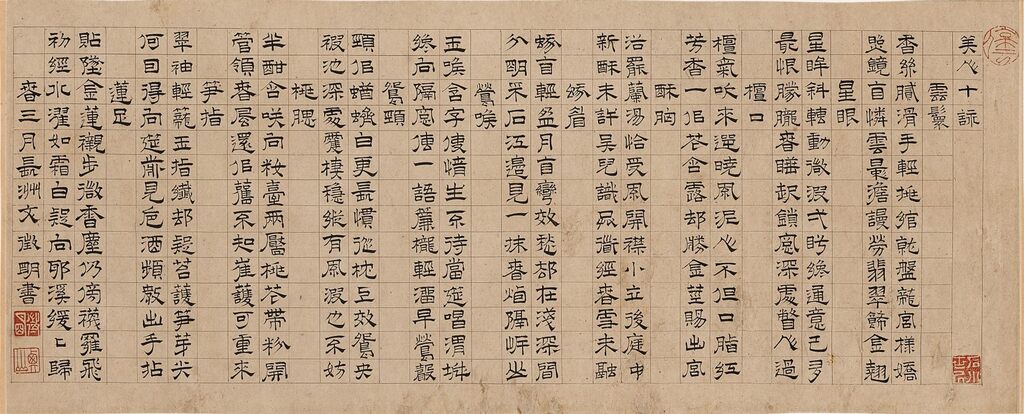 美人十詠
雲鬟
香絲膩滑手輕挼綰就盤龍宮樣嬌
照鏡自憐雲最澹謾勞翡翠飾金翹
星眼
星眸斜轉動微波弌盼終通意已多
最恨朦朧春睡起鎖窓深處瞥人過
檀口
檀氣吹來逆曉風泥人不但口脂紅
芳香一佀花含露却勝金莖賜出宮
酥胸
浴罷蘭湯恰受風開襟小立後庭中
新酥未許吳兒識只道經春雪未融
蛾眉
蛾眉輕盈月眉彎效愁都在淺深間
分明采石江邊見一抹春煙隔岸山
鶯喉
玉喉含字使情生不待當筵唱渭城
縱向隔窓使一語簾櫳輕溜早鶯聲
鴛頸
頸佀蝤蠐白更長慣從枕上效鴛央
池深處棲穩縱有風波也不妨
桃腮
半酣含笑向妝臺兩靨桃花帶粉開
管領春風還佀舊不知崔護可重來
笋指
翠袖輕籠玉指纖却疑苔護笋芽尖
何日得向筵前見卮酒頻教出手拈
蓮足
貼墜金蓮襯步微香塵仍傍襪羅飛
初經水濯如霜白疑向耶溪緩〻歸
春三月長洲文徵明書